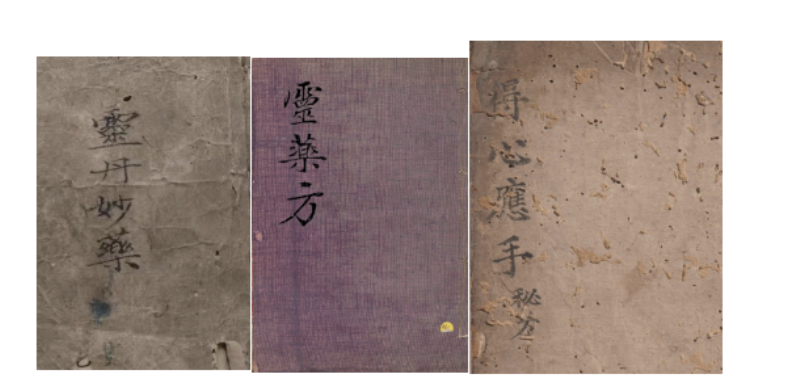 靈丹妙藥
靈藥方
得心應手
秘方